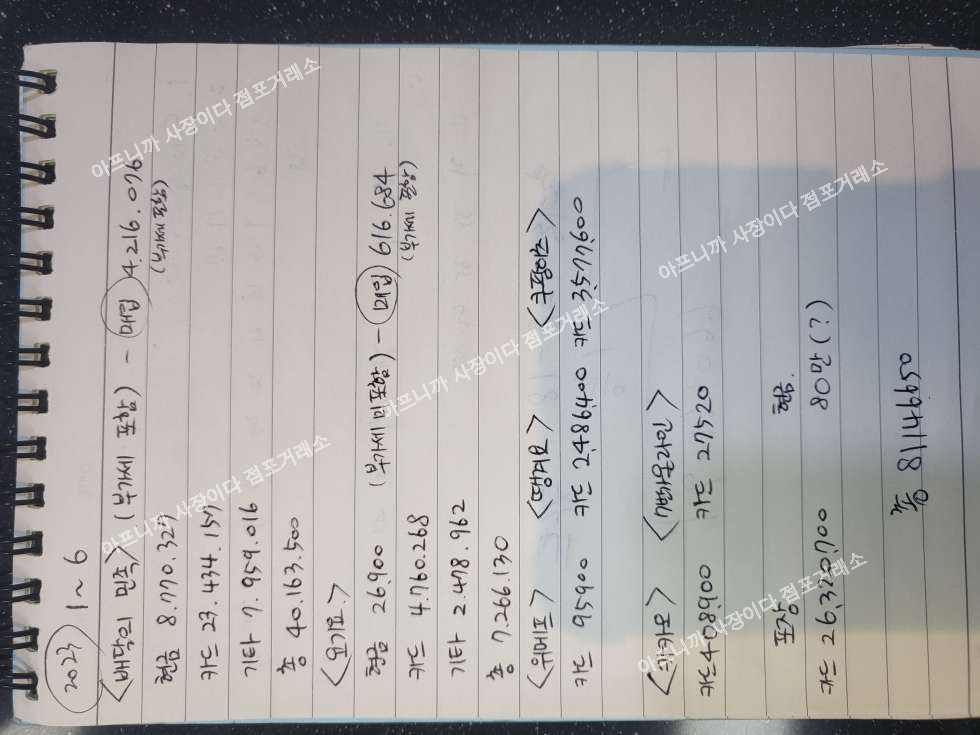 2023 1~6
<배달의 직팀> (부가세 포함) - 매입 4.216.076
(부가세 별도)
현금 8.770.327
카드 23.434.157
기타 7.959.016
총 40.163.500
<요기요>
현금 26,900 (부가세 미포함) - 매입 616.684
(부가세 포함)
카드 4.760.268
기타 2.478.962
총 7.266.130
<위메프> <땡겨요> <쿠팡이츠>
카드 95900 카드 2,489400 카드 3,577600
카드 408900 카드 27520
포장 현금
카드 26,320,400 80만 (?)
총 81144950
아프니까 사장이다 점포거래소
아프니까 사장이다 점포거래소
아프니까 사장이다 점포거래소
아프니까 사장이다 점포거래소
아프니까 사장이다 점포거래소